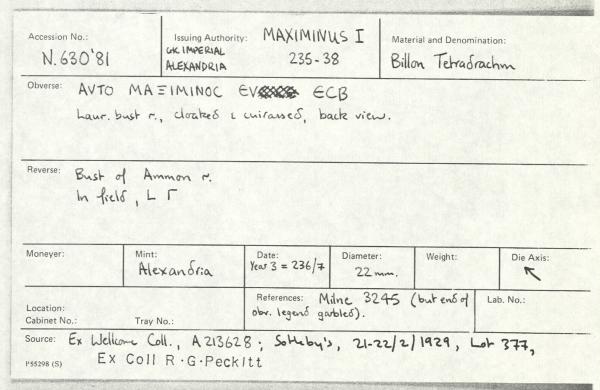 Accession No.:
N.630'81
Issuing Authority: MAXIMINUS I
GK IMPERIAL
ALEXANDRIA 235-38
Material and Denomination:
Billon Tetradrachm
Obverse: AVTO MAΞIMINOC EV ECB
Laur. bust r., cloaked & cuirassed, back view.
Reverse: Bust of Ammon r.
In field, L Γ
Moneyer:
Mint:
Alexandria
Date:
Year 3 = 236/7
Diameter:
22 mm.
Weight:
Die Axis:
↖
Location:
Cabinet No.: Tray No.:
References: Milne 3245 (but end of
obv. legend garbled).
Lab. No.:
Source: Ex Wellcome Coll., A213628; Sotheby's, 21-22/2/1929, Lot 377,
Ex Coll R·G·Peckitt
P55298 (S)